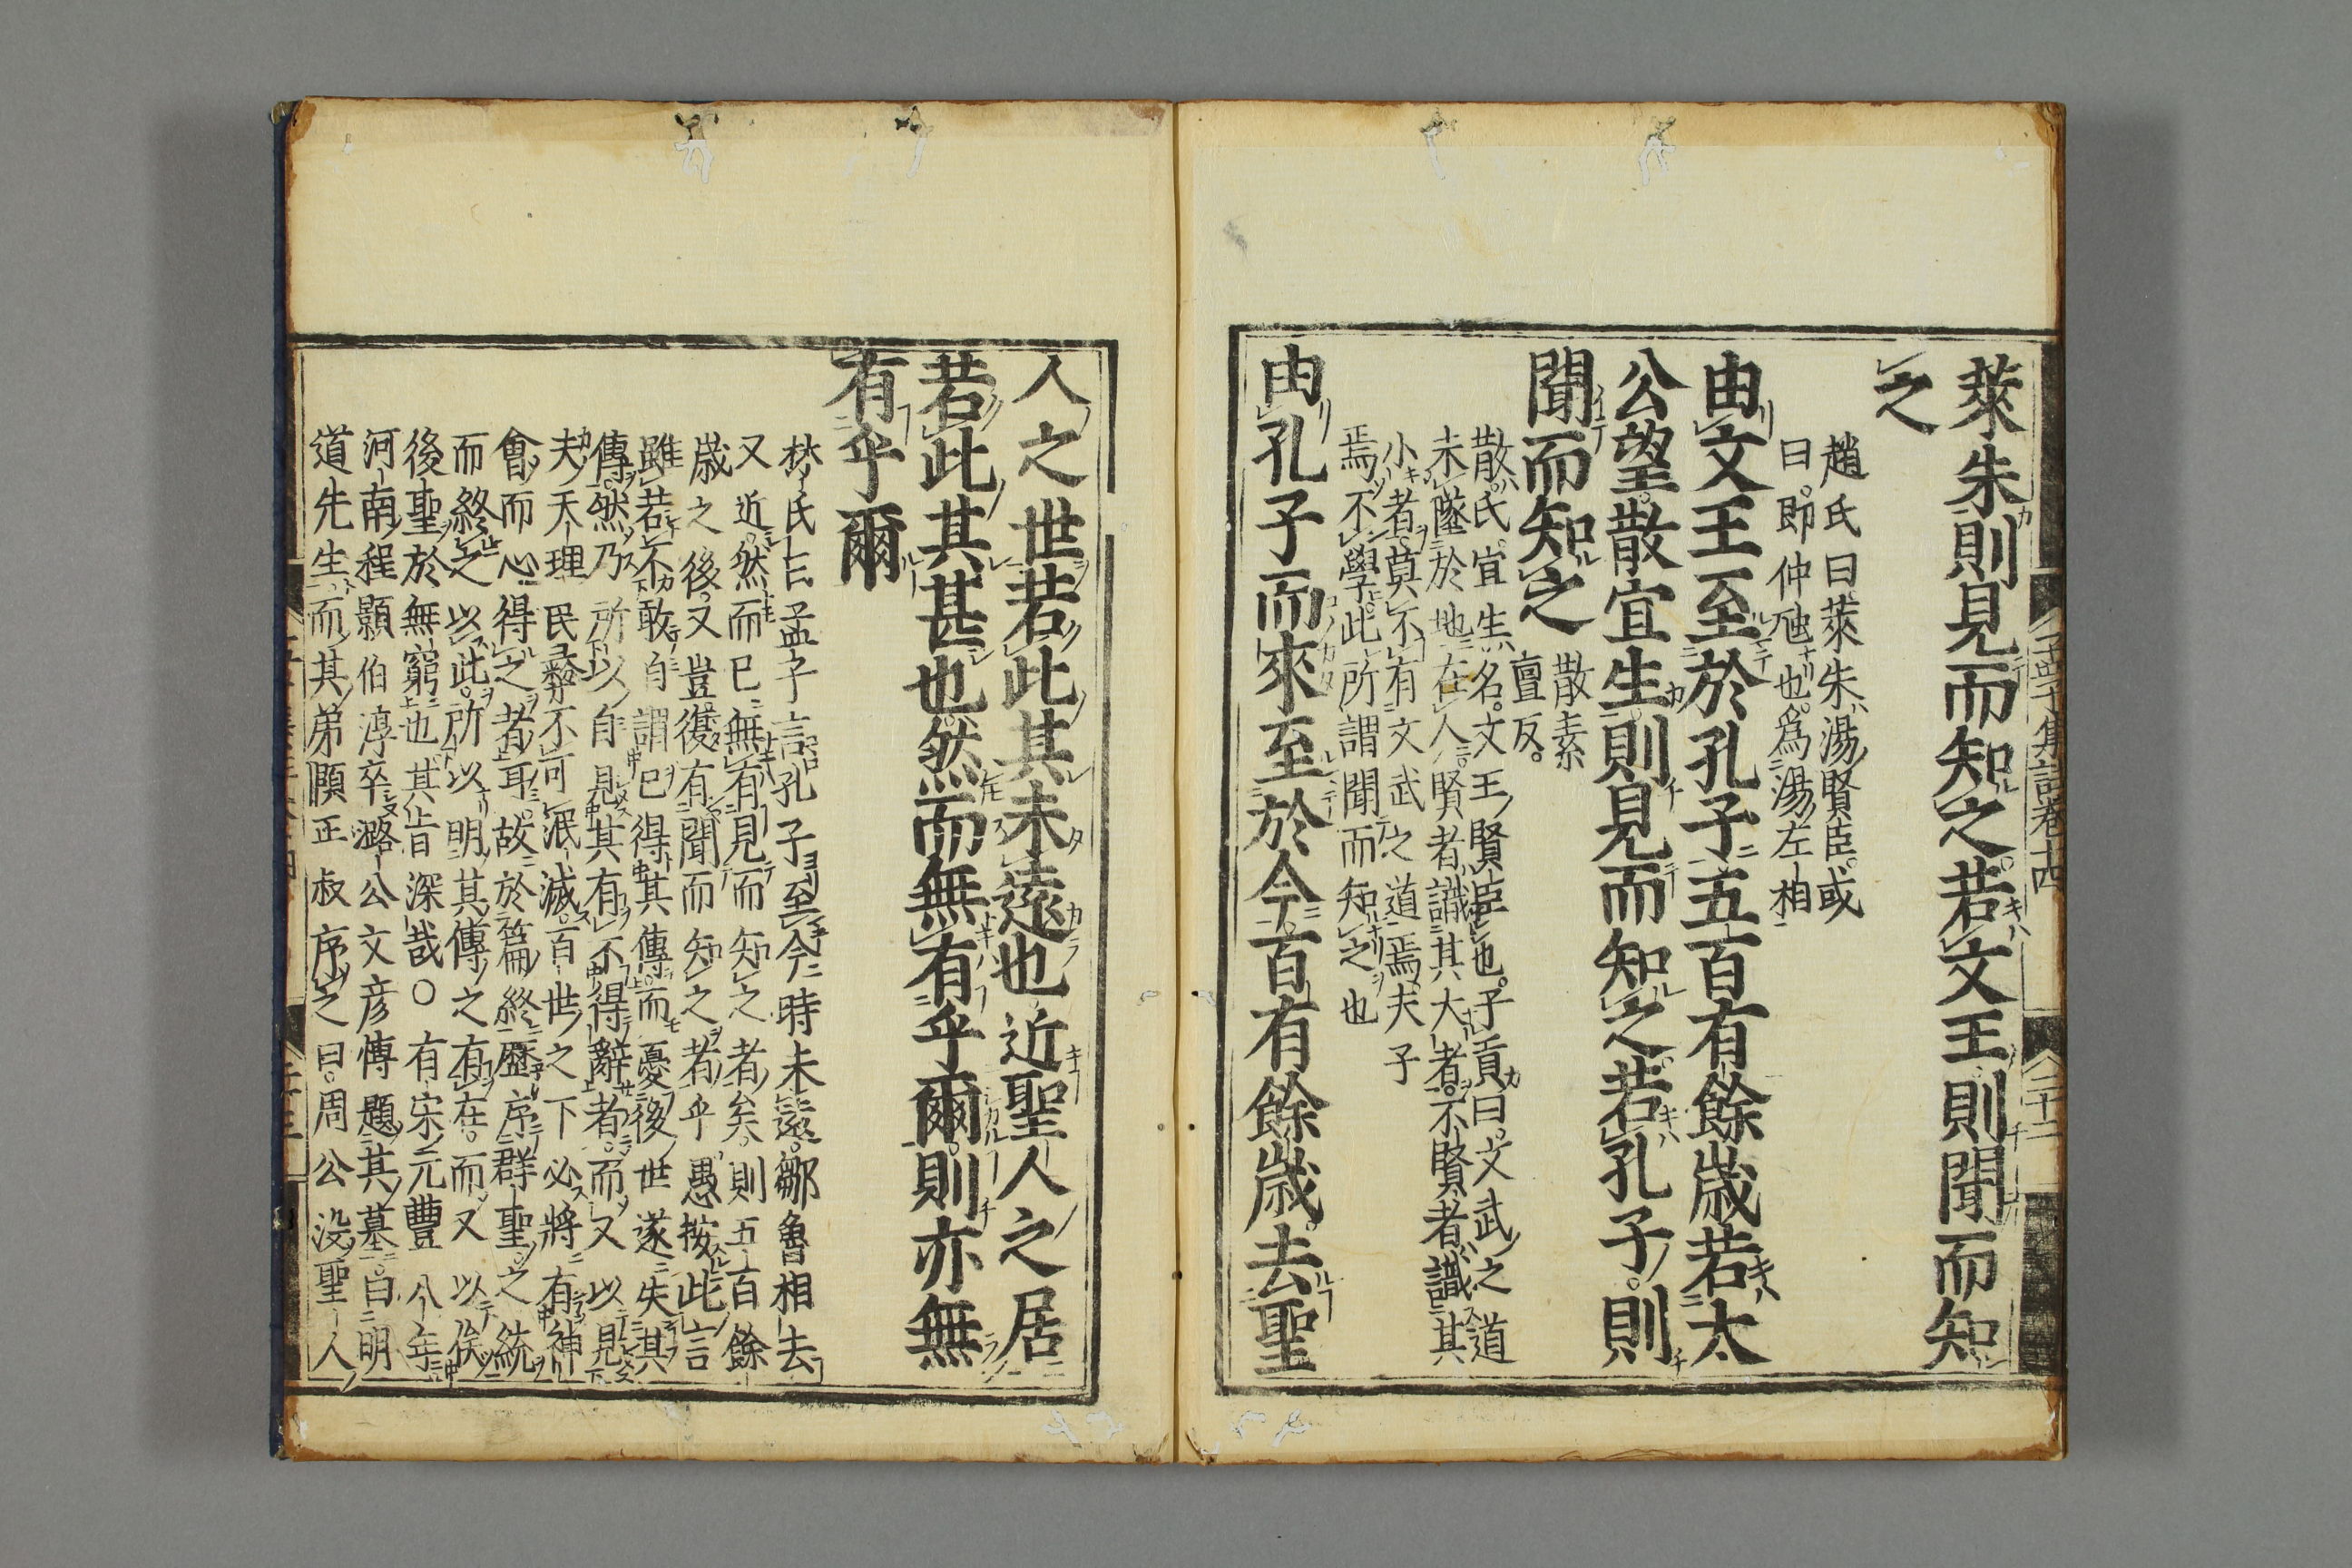 孟子集註卷十四
二十二
萊朱則見而知之若文王則聞而知
之
趙氏曰萊朱湯賢臣或
曰即仲虺也爲湯左相
由文王至於孔子五百有餘歲若太
公望散宜生則見而知之若孔子則
聞而知之
散素
亶反
散氏宜生名文王賢臣也子貢曰文武之道
未墜於地在人賢者識其大者不賢者識其
小者莫不有文武之道焉夫子
焉不學此所謂聞而知之也
由孔子而來至於今百有餘歲去聖
人之世若此其未遠也近聖人之居
若此其甚也然而無有乎爾則亦無
有乎爾
林氏曰孟子言孔子至今時未遠鄒魯相去
又近然而已無有見而知之者矣則五百餘
歲之後又豈復有聞而知之者乎愚按此言
雖若不敢自謂已得其傳而憂後世遂失其
傳然乃所以自見其有不得辭者而又以見
夫天理民彝不可泯滅百世之下必將有神
會而心得之者耳故於篇終歷序群聖之統
而終之以此所以明其傳之有在而又以俟
後聖於無窮也其㫖深哉○有宋元豐八年
河南程顥伯淳卒潞公文彦博題其墓曰明
道先生而其弟頤正叔序之曰周公没聖人